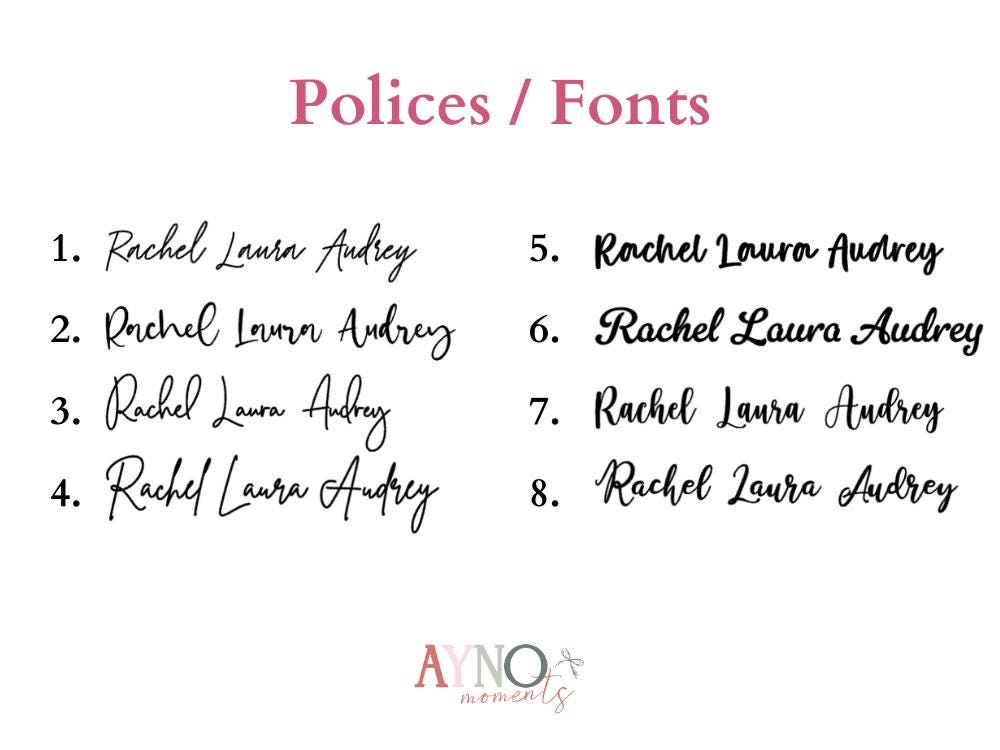 Polices / Fonts
1. Rachel Laura Audrey
2. Rachel Laura Audrey
3. Rachel Laura Audrey
4. Rachel Laura Audrey
5. Rachel Laura Audrey
6. Rachel Laura Audrey
7. Rachel Laura Audrey
8. Rachel Laura Audrey
AYNO
moments